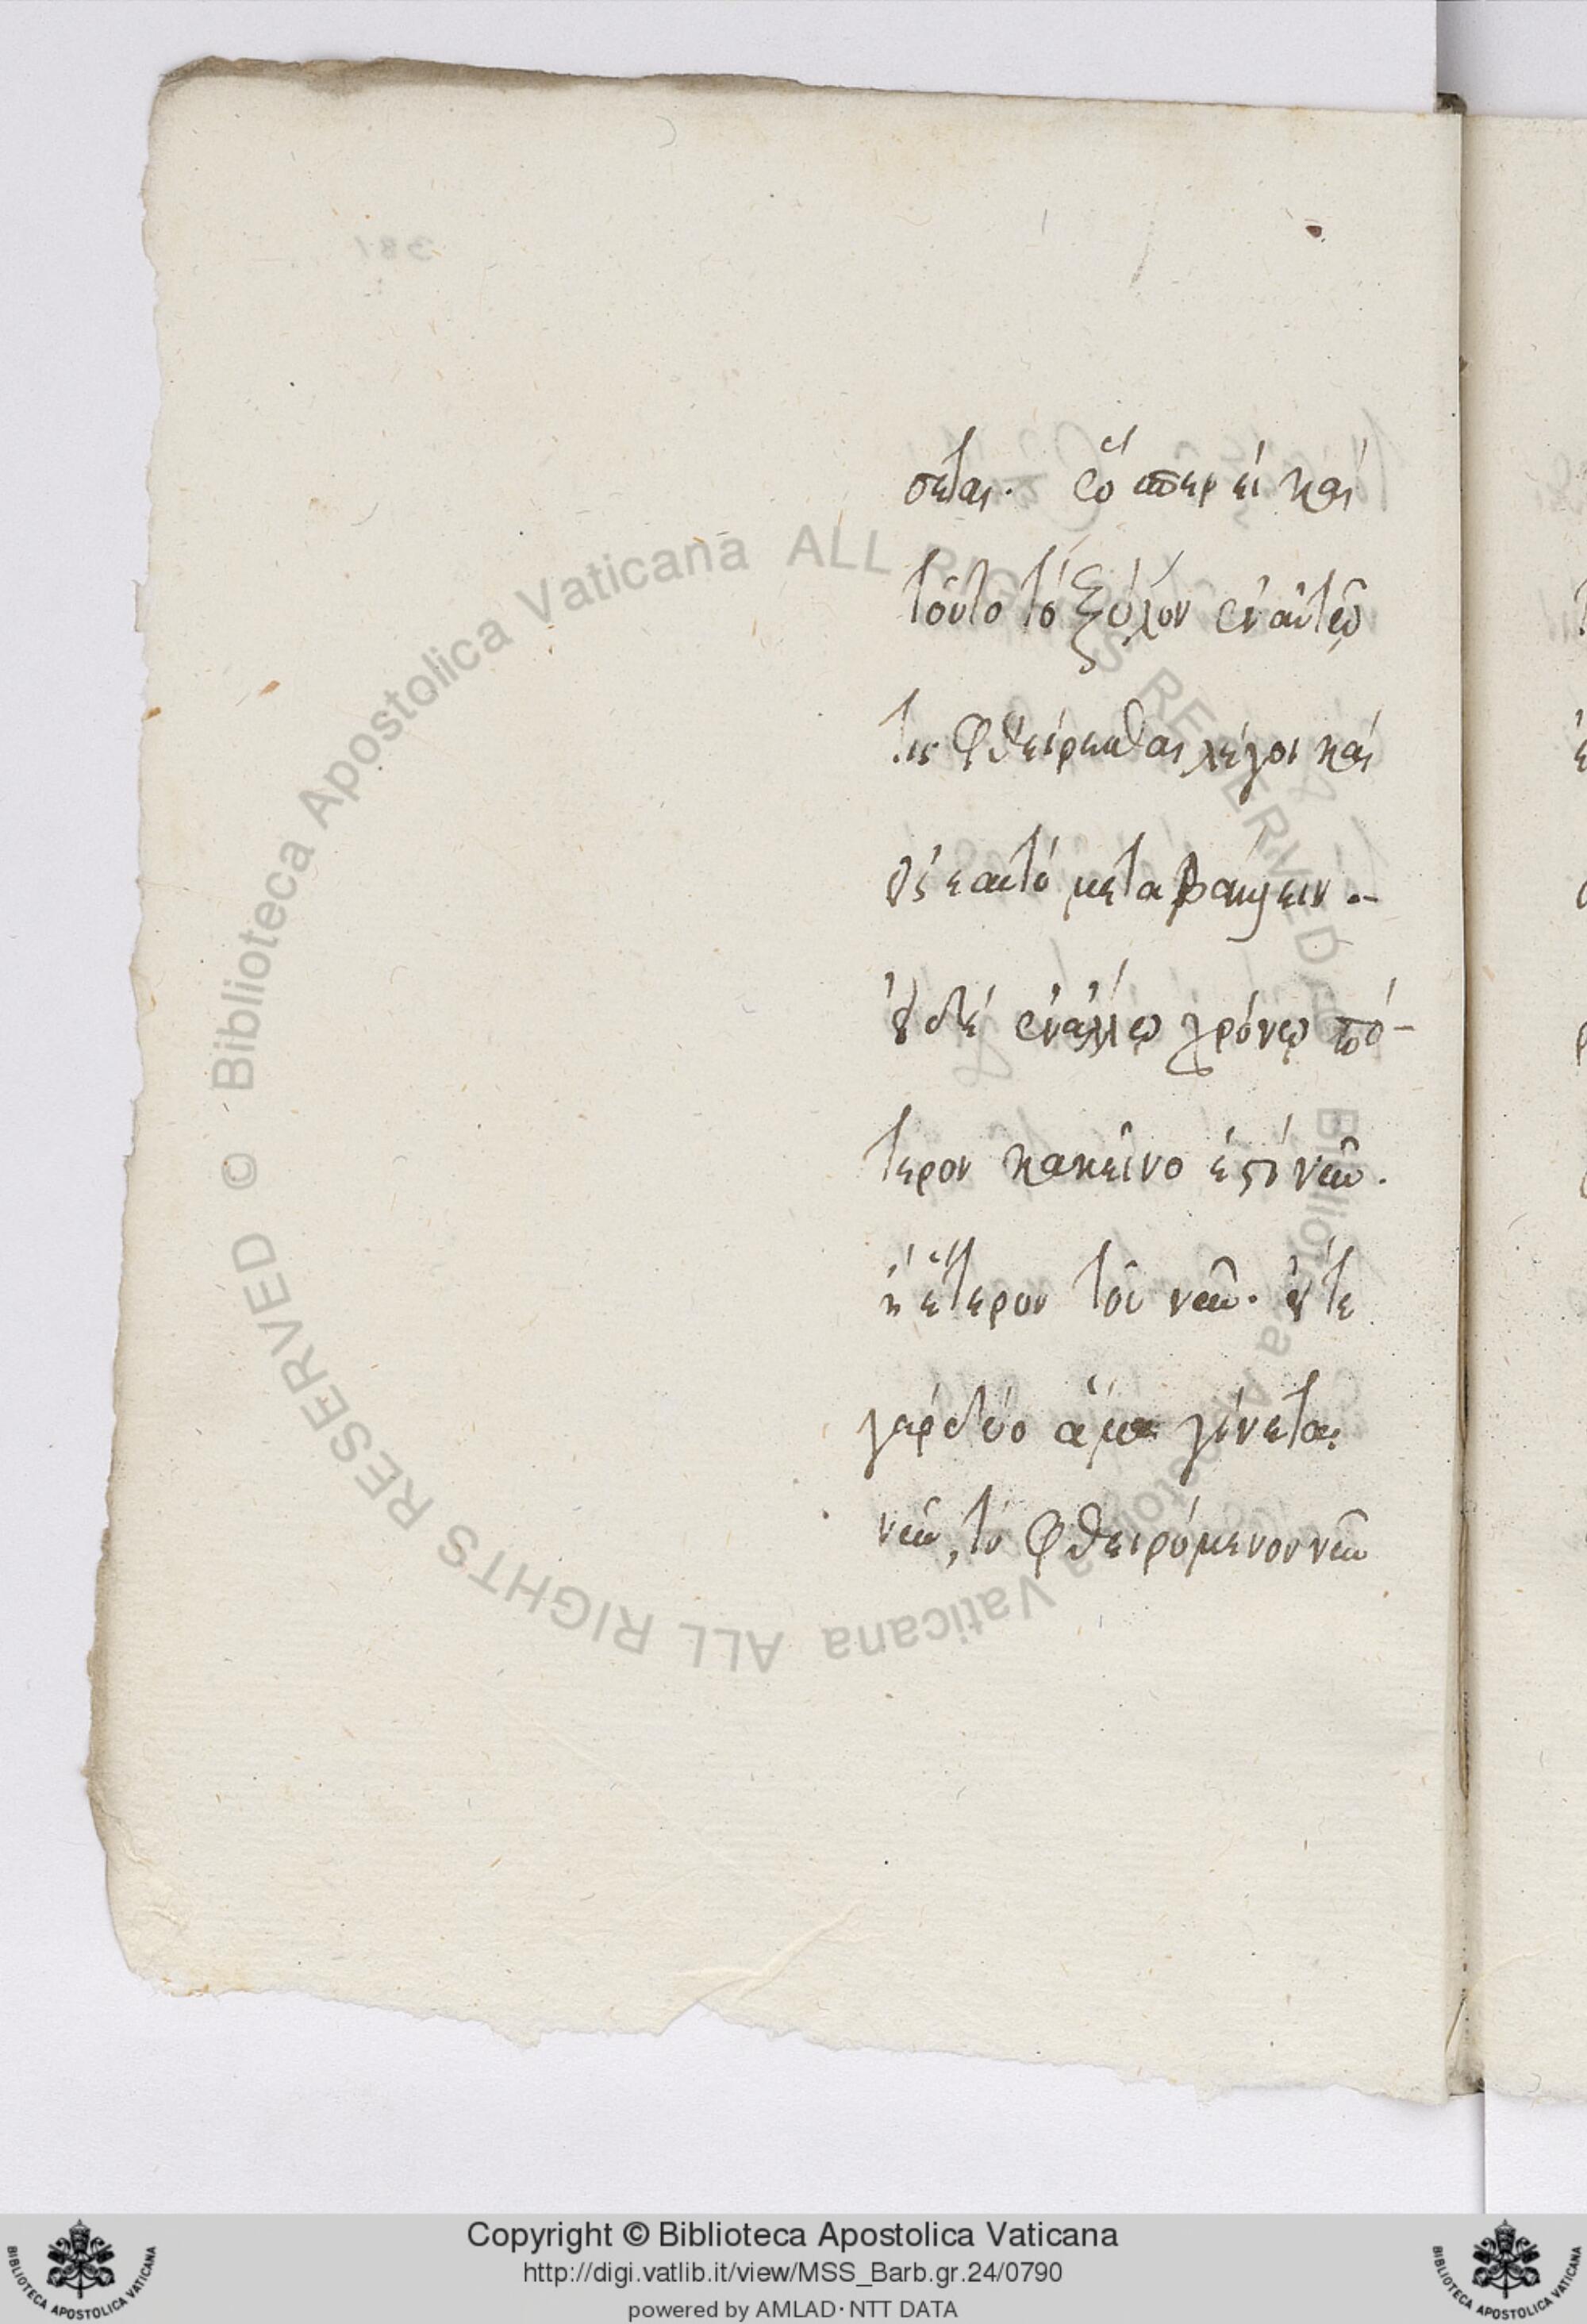 σεται. ὥσπερ εἰ καὶ
τοῦτο τὸ ξύλον ἐν αὐτῷ
τις φθείρεσθαι λέγοι καὶ
εἰς ἑαυτὸ μεταβάλλειν.
οὐδὲ ἐν ἄλλῳ χρόνῳ πό-
τερον κακεῖνο ἐστὶ νῦν.
ἢ ἕτερον τοῦ νῦν. οὔτε
γὰρ δύο ἅμα γίνεται
νῦν, τὸ φθειρόμενον νῦν
381
Biblioteca Apostolica Vaticana ALL RIGHTS RESERVED ©
Biblioteca Apostolica Vaticana ALL RIGHTS RESERVED ©
Copyright © Biblioteca Apostolica Vaticana
http://digi.vatlib.it/view/MSS_Barb.gr.24/0790
powered by AMLAD·NTT DATA
BIBLIOTECA APOSTOLICA VATICANA
BIBLIOTECA APOSTOLICA VATICANA